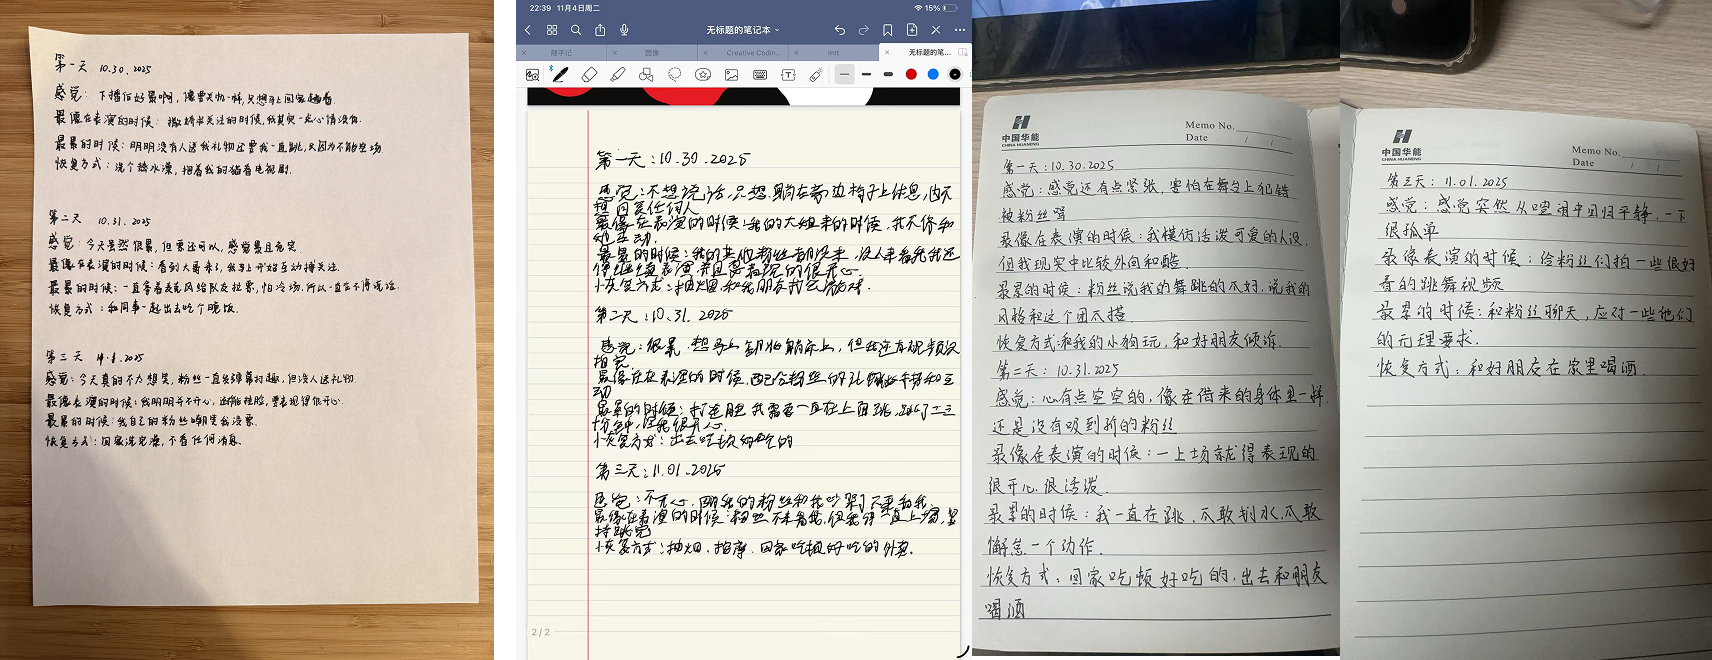 第一天 10.30.2025
感觉: 下播后好累啊, 像要失物一样, 只想马上回家躺着.
最像在表演的时候: 撒娇求关注的时候, 我其实一点心情没有.
最累的时候: 明明没有人送我礼物还要我一直跳, 又因为不能空场
恢复方式: 洗个热水澡, 抱着我的猫看电视剧.
第二天 10.31.2025
感觉: 今天虽然很累, 但是还可以, 感觉累且充实.
最像在表演的时候: 看到大哥来了, 我马上开始互动博关注.
最累的时候: 一直穿着表演风给队友拉票, 怕冷场, 所以一直在不停说话.
恢复方式: 和同事一起出去吃个晚饭.
第三天 11.1.2025
感觉: 今天真的不想笑, 粉丝一直发弹幕打趣, 但没人送礼物.
最像表演的时候: 我明明并不开心, 还不能挂脸, 要表现得很开心.
最累的时候: 我自己的粉丝嘲笑我没票.
恢复方式: 回家洗完澡, 不看任何消息.
22:39 11月4日周二
15%
无标题的笔记本
随手记
图像
Creative Codin...
mtt
无标题的笔...
第一天: 10.30.2025
感觉: 不想说话, 只想躺在旁边椅子上休息, 也不
想回复任何人.
最像在表演的时候: 我的大姐来的时候, 我不停和
她互动.
最累的时候: 我的其他粉丝都没来, 没人来看我我还
得继续表演, 并且要表现的很开心.
恢复方式: 抽烟, 和我朋友打台球.
第二天: 10.31.2025
感觉: 很累, 想马上卸妆躺床上, 但我还有视频没
拍完
最像在表演的时候, 自己给粉丝的
动
最累的时候: 打连胜, 我需要一直在上面跳, 跳了二三
十分钟, 但我很开心.
恢复方式: 出去吃顿好吃的
第三天: 11.01.2025
感觉: 不开心, 因我的粉丝和我吵架了不来看我
最像在表演的时候: 粉丝不来看我, 但我得一直上场, 坚
持跳完
恢复方式: 抽烟. 按摩. 回家吃顿好吃的外卖.
2/2
中国华能
CHINA HUANENG
Memo No.
Date / /
第一天: 10.30.2025
感觉: 感觉还有点紧张, 害怕在舞台上犯错
被粉丝骂
最像在表演的时候: 我模仿活泼可爱的人设,
但我现实中比较外向和酷.
最累的时候: 粉丝说我的舞跳的不好, 说我的
风格和这个团不搭
恢复方式: 和我的小狗玩, 和好朋友倾诉.
第二天: 10.31.2025
感觉: 心有点空空的, 像在借来的身体里一样.
还是没有吸到新的粉丝
最像在表演的时候: 一上场就得表现的
很开心, 很活泼.
最累的时候: 我一直在跳, 不敢划水, 不敢
懈怠一个动作.
恢复方式: 回家吃顿好吃的, 出去和朋友
喝酒
中国华能
CHINA HUANENG
Memo No.
Date / /
第三天: 11.01.2025
感觉: 感觉突然从喧闹中回归平静, 一下
很孤单
最像表演的时候: 给粉丝们拍一些很好
看的跳舞视频
最累的时候: 和粉丝聊天, 应对一些他们
的无理要求.
恢复方式: 和好朋友在家里喝酒.